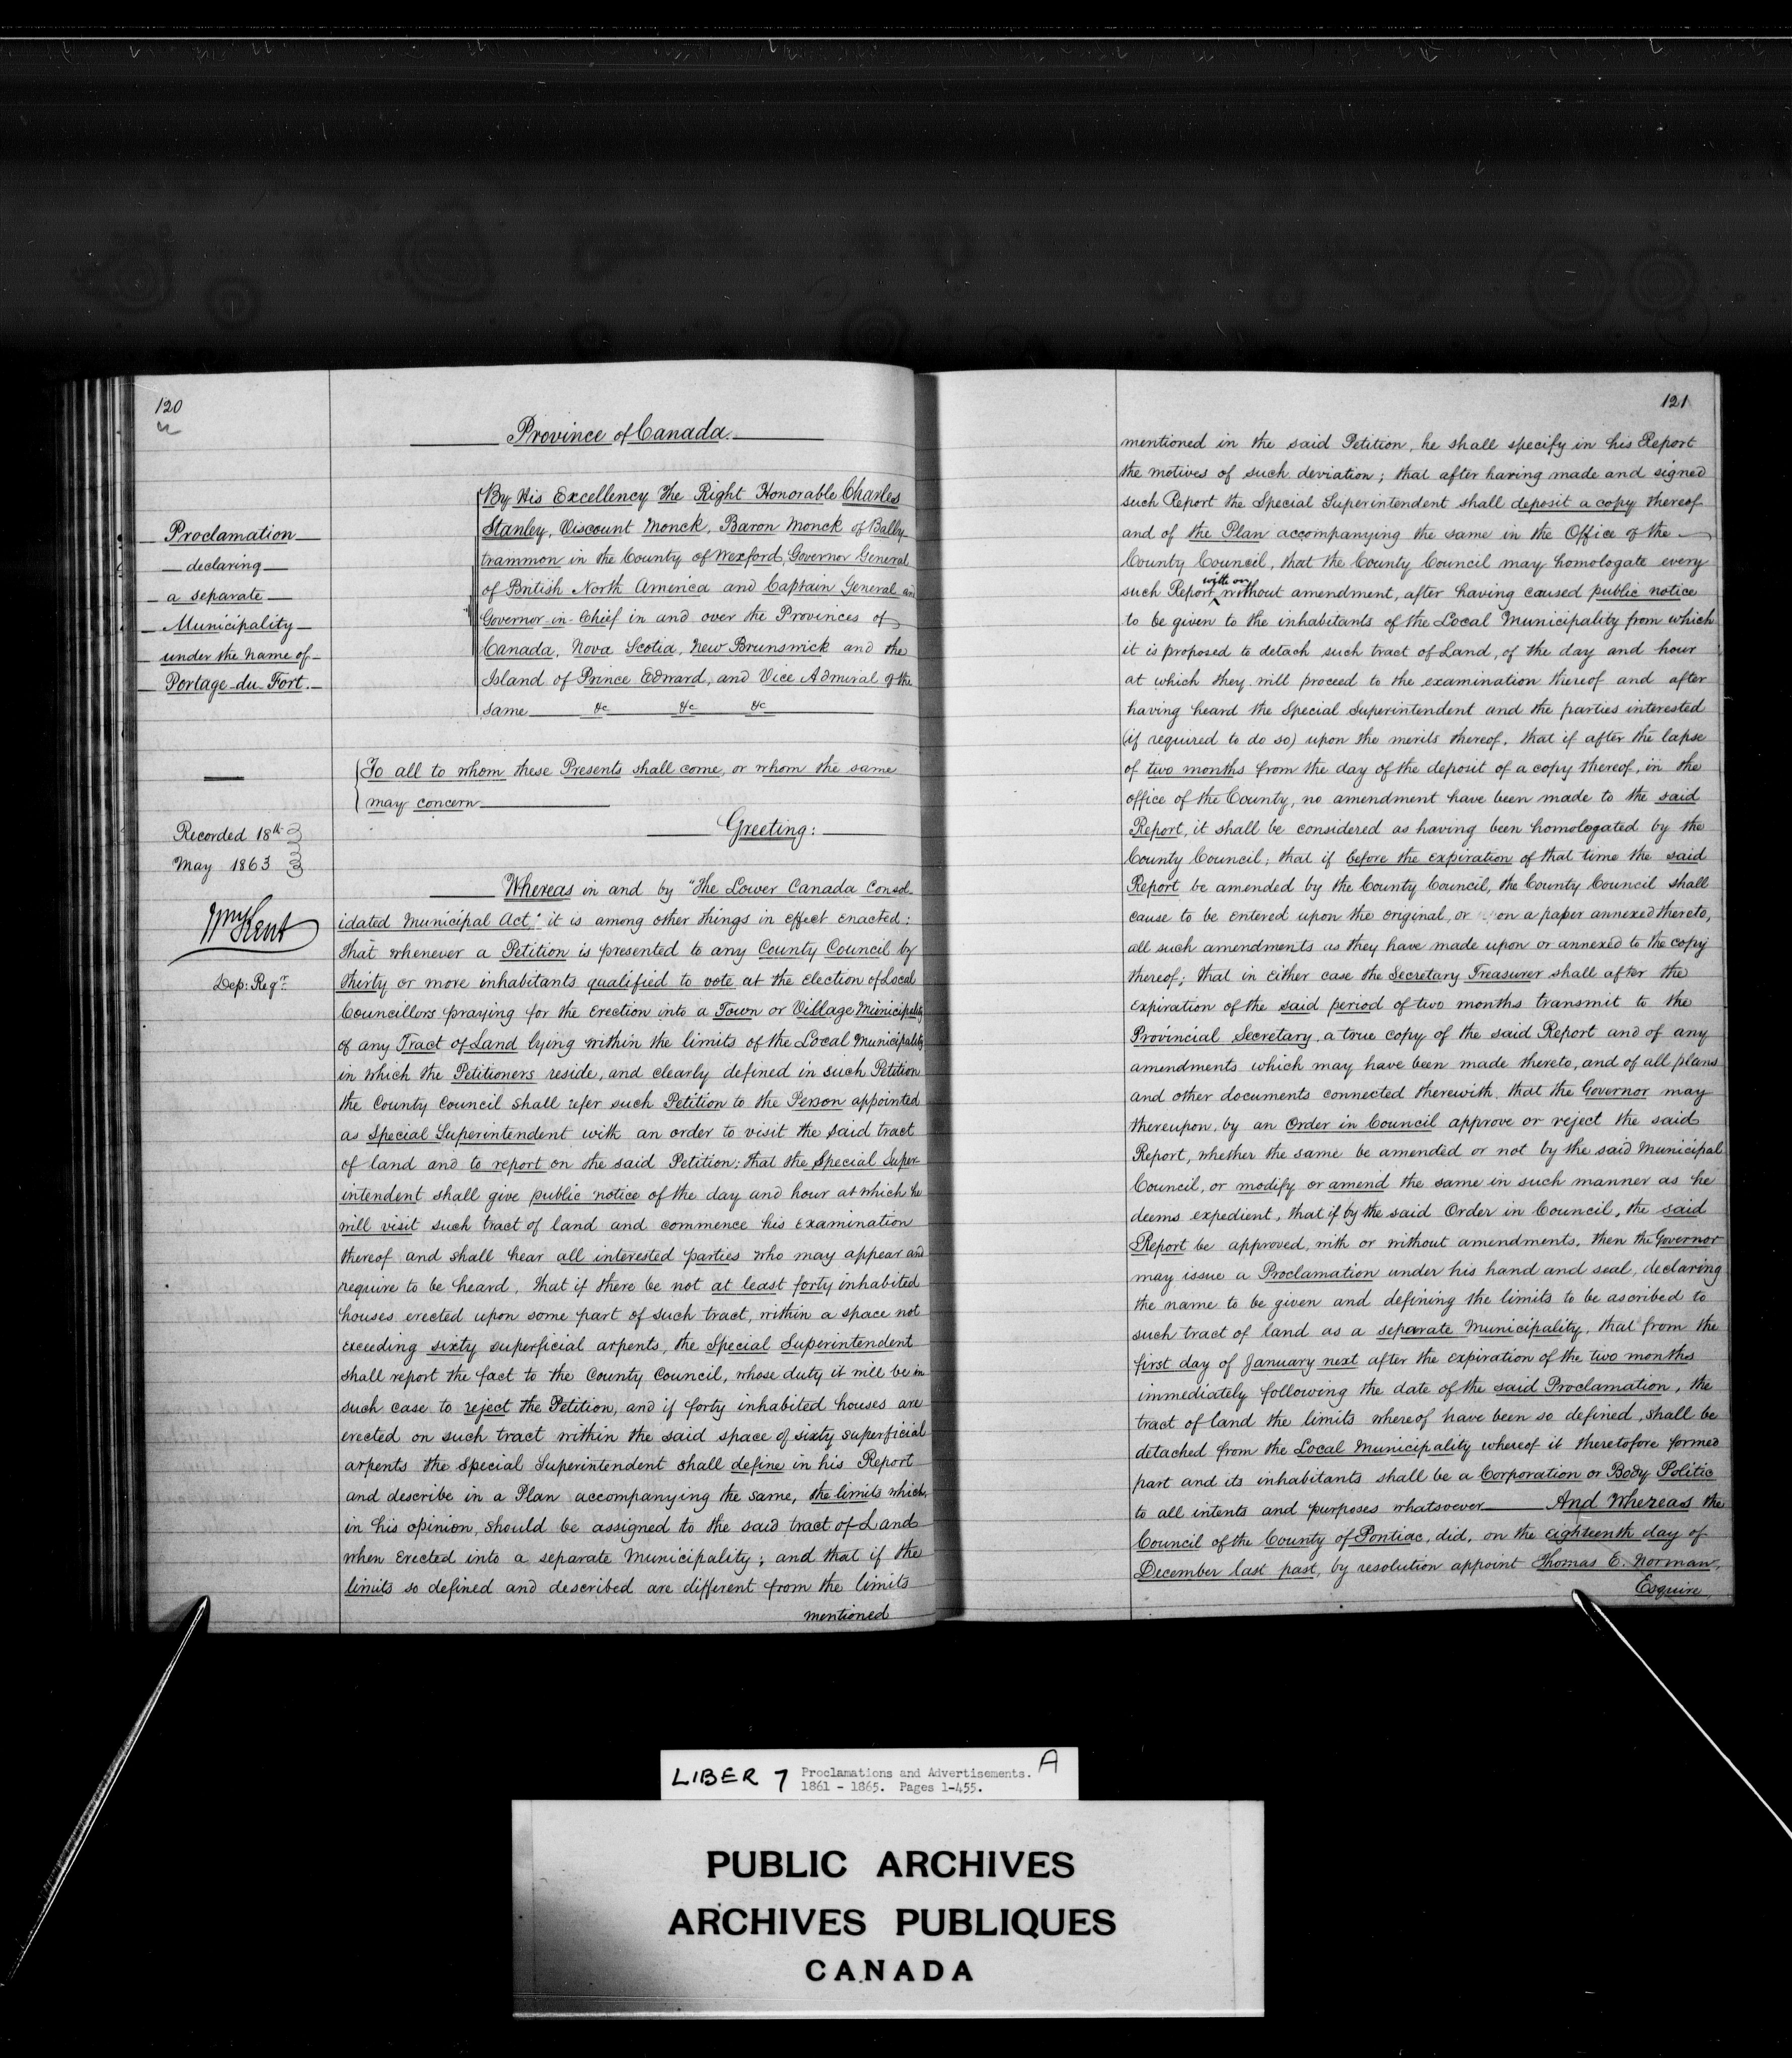 120
Province of Canada.
Proclamation
declaring
a separate
Municipality
under the name of
Portage-du-Fort.
Recorded 18th
May 1863
Wm Kent
Dep: Regr.
By His Excellency The Right Honorable Charles
Stanley, Viscount Monck, Baron Monck of Bally-
trammon in the County of Wexford, Governor General
of British North America and Captain General and
Governor-in-Chief in and over the Provinces of
Canada, Nova Scotia, New Brunswick and the
Island of Prince Edward, and Vice Admiral of the
same &c &c &c
To all to whom these Presents shall come, or whom the same
may concern
Greeting:
Whereas in and by "The Lower Canada Consol-
idated Municipal Act," it is among other things in effect enacted:
That whenever a Petition is presented to any County Council by
thirty or more inhabitants qualified to vote at the Election of Local
Councillors praying for the Erection into a Town or Village Municipality
of any Tract of Land lying within the limits of the Local Municipality
in which the Petitioners reside, and clearly defined in such Petition
the County Council shall refer such Petition to the Person appointed
as Special Superintendent with an order to visit the said tract
of land and to report on the said Petition; that the Special Super-
intendent shall give public notice of the day and hour at which he
will visit such tract of land and commence his Examination
thereof and shall hear all interested parties who may appear and
require to be heard, that if there be not at least forty inhabited
houses erected upon some part of such tract, within a space not
exceeding sixty superficial arpents, the Special Superintendent
shall report the fact to the County Council, whose duty it will be in
such case to reject the Petition, and if forty inhabited houses are
erected on such tract within the said space of sixty superficial
arpents the Special Superintendent shall define in his Report
and describe in a Plan accompanying the same, the limits which,
in his opinion, should be assigned to the said tract of Land
when Erected into a separate Municipality; and that if the
limits so defined and described are different from the limits
mentioned
121
mentioned in the said Petition, he shall specify in his Report
the motives of such deviation; that after having made and signed
such Report the Special Superintendent shall deposit a copy thereof
and of the Plan accompanying the same in the Office of the
County Council, that the County Council may homologate every
such Report with or without amendment, after having caused public notice
to be given to the inhabitants of the Local Municipality from which
it is proposed to detach such tract of Land, of the day and hour
at which they will proceed to the examination thereof and after
having heard the Special Superintendent and the parties interested
(if required to do so) upon the merits thereof, that if after the lapse
of two months from the day of the deposit of a copy thereof, in the
office of the County, no amendment have been made to the said
Report, it shall be considered as having been homologated by the
County Council; that if before the expiration of that time the said
Report be amended by the County Council, the County Council shall
cause to be entered upon the original, or on a paper annexed thereto,
all such amendments as they have made upon or annexed to the copy
thereof; that in either case the Secretary Treasurer shall after the
expiration of the said period of two months transmit to the
Provincial Secretary, a true copy of the said Report and of any
amendments which may have been made thereto, and of all plans
and other documents connected therewith, that the Governor may
thereupon, by an Order in Council approve or reject the said
Report, whether the same be amended or not by the said Municipal
Council, or modify or amend the same in such manner as he
deems expedient, that if by the said Order in Council, the said
Report be approved, with or without amendments, then the Governor
may issue a Proclamation under his hand and seal, declaring
the name to be given and defining the limits to be ascribed to
such tract of land as a separate Municipality, that from the
first day of January next after the expiration of the two months
immediately following the date of the said Proclamation, the
tract of land the limits whereof have been so defined, shall be
detached from the Local Municipality whereof it theretofore formed
part and its inhabitants shall be a Corporation or Body Politic
to all intents and purposes whatsoever And Whereas the
Council of the County of Pontiac, did, on the eighteenth day of
December last past, by resolution appoint Thomas E. Norman,
Esquire,
LIBER 7 Proclamations and Advertisements. A
1861 - 1865. Pages 1-455.
PUBLIC ARCHIVES
ARCHIVES PUBLIQUES
CANADA